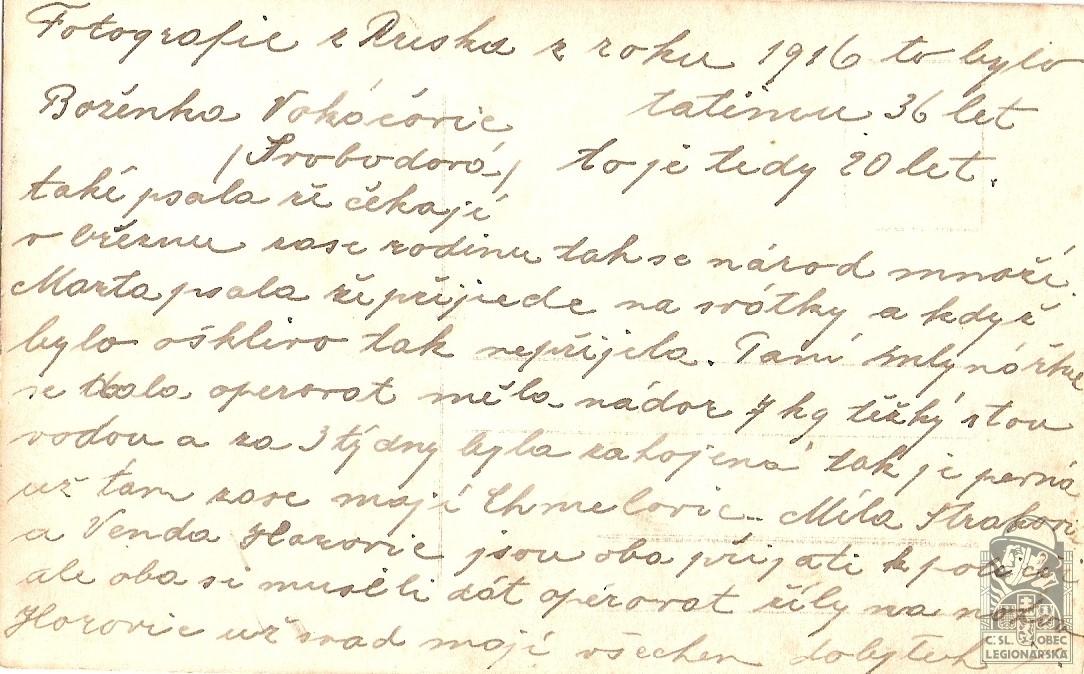 Fotografie z Ruska z roku 1916 to bylo
tatínu 36 let
Boženka Vokáčovic
(Svobodová) to je tedy 20 let.
také psala že čekají
v březnu zase rodinu tak se národ množí.
Marta psala že přijede na svátky a když
bylo ošklivo tak nepřijela. Paní mlynářka
se dala operovat měla nádor 7 kg těžký s tou
vodou a za 3 týdny byla zahojená tak je pevná
už tam zase mají Chmelovic Míla Strakovic
a Venda Horovic jsou oba přijati k policii
ale oba si museli dát operovat žíly na nohou
Horovic už svad mají všechen dobytek
Č. SL. OBEC
LEGIONÁŘSKÁ